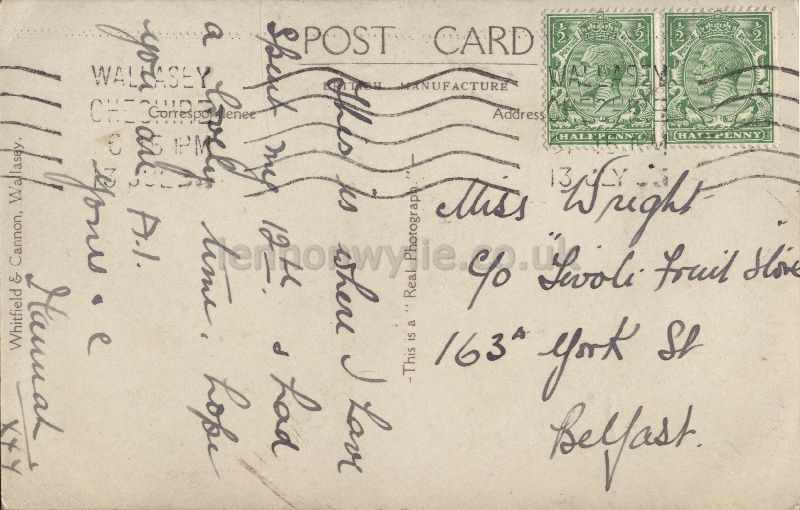 POST CARD
BRITISH MANUFACTURE
Correspondence
Address
WALLASEY
CHESHIRE
WALLASEY
13 JLY
HALFPENNY
HALFPENNY
This is where I have
spent my 12th & had
a lovely time. hope
you are A.1.
Yours &c
Hannah
XXX
Miss Wright
c/o "Tivoli Fruit Store
163A York St
Belfast.
-This is a "Real Photograph."-
Whitfield & Cannon, Wallasey.
lennonwylie.co.uk